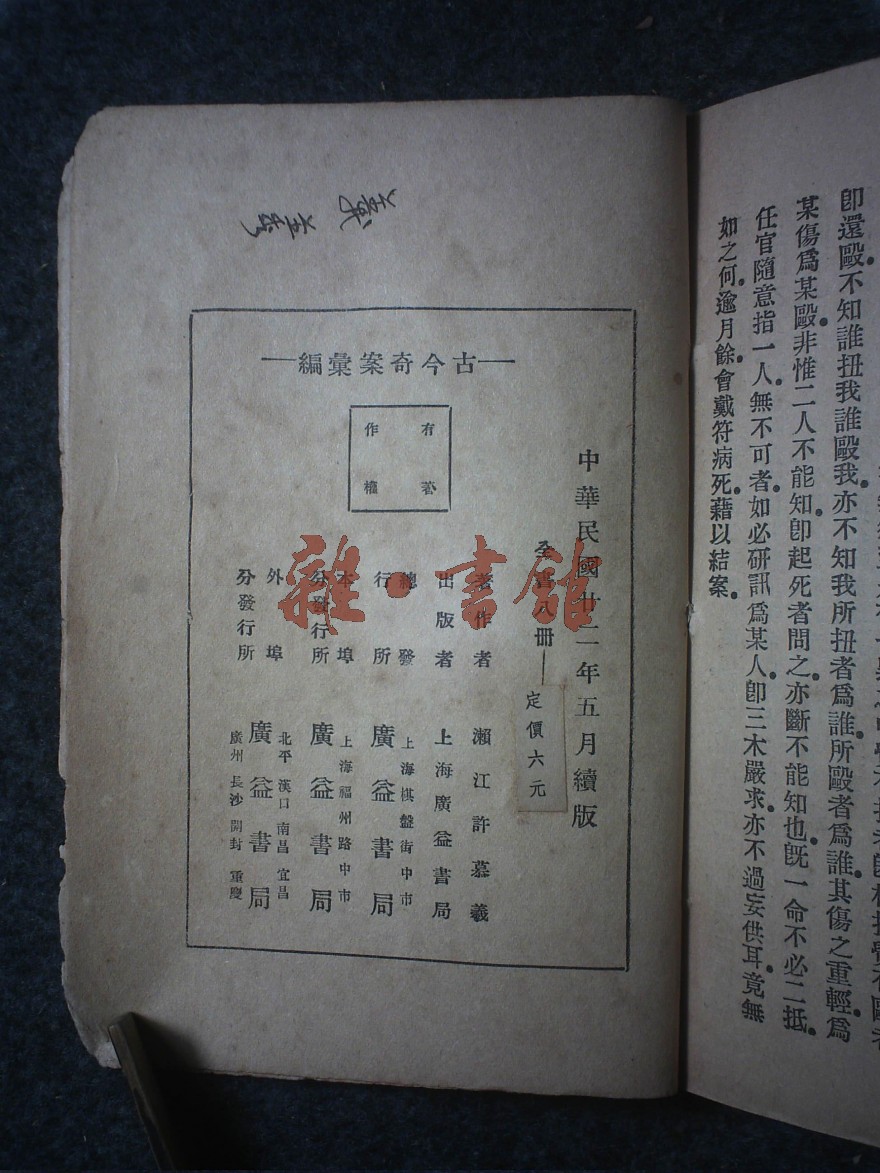 即還毆不知誰扭我誰毆我亦不知我所扭者爲誰所毆者爲誰其傷之重輕爲
某傷爲某毆非惟二人不能知卽起死者問之亦斷不能知也旣一命不必二抵
任官隨意指一人無不可者如必研訊爲某人卽三木嚴求亦不過妄供耳竟無
如之何逾月餘會戴符病死藉以結案
古今奇案彙編
有著
作權
中華民國廿二年五月續版
全書八冊
定價六元
著作者 瀨江許慕羲
出版者 上海廣益書局
總發行所 上海棋盤街中市 廣益書局
本埠分發行所 上海福州路中市 廣益書局
外埠分發行所 北平 漢口 南昌 宜昌 廣益書局
廣州 長沙 開封 重慶
雜·書館